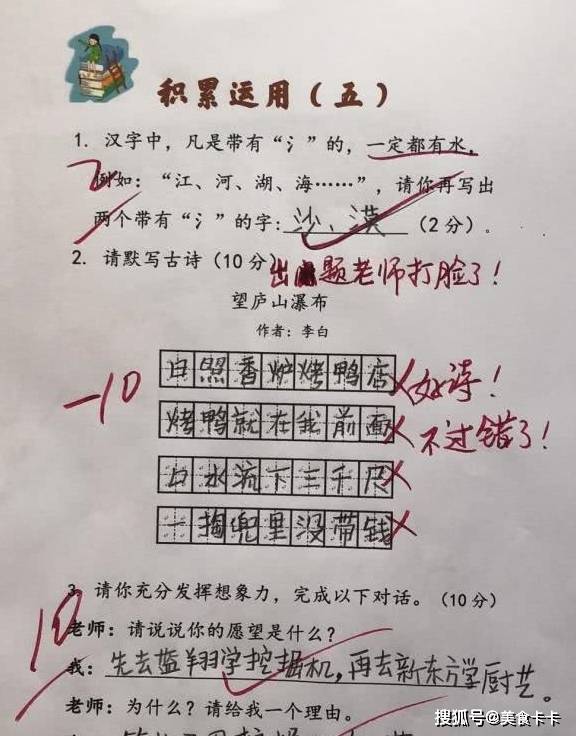 积累运用（五）
1. 汉字中，凡是带有“氵”的，一定都有水，
2
例如：“江、河、湖、海……”，请你再写出
两个带有“氵”的字：沙、漠（2分）。
2. 请默写古诗（10分）
出题老师打脸了！
望庐山瀑布
作者：李白
-10
日照香炉烤鸭店
好诗！
烤鸭就在我前面
不过错了！
口水流下三千尺
一掏兜里没带钱
3. 请你充分发挥想象力，完成以下对话。（10分）
10
老师：请说说你的愿望是什么？
我：先去蓝翔学挖掘机，再去新东方学厨艺。
老师：为什么？请给我一个理由。
搜狐号@美食卡卡